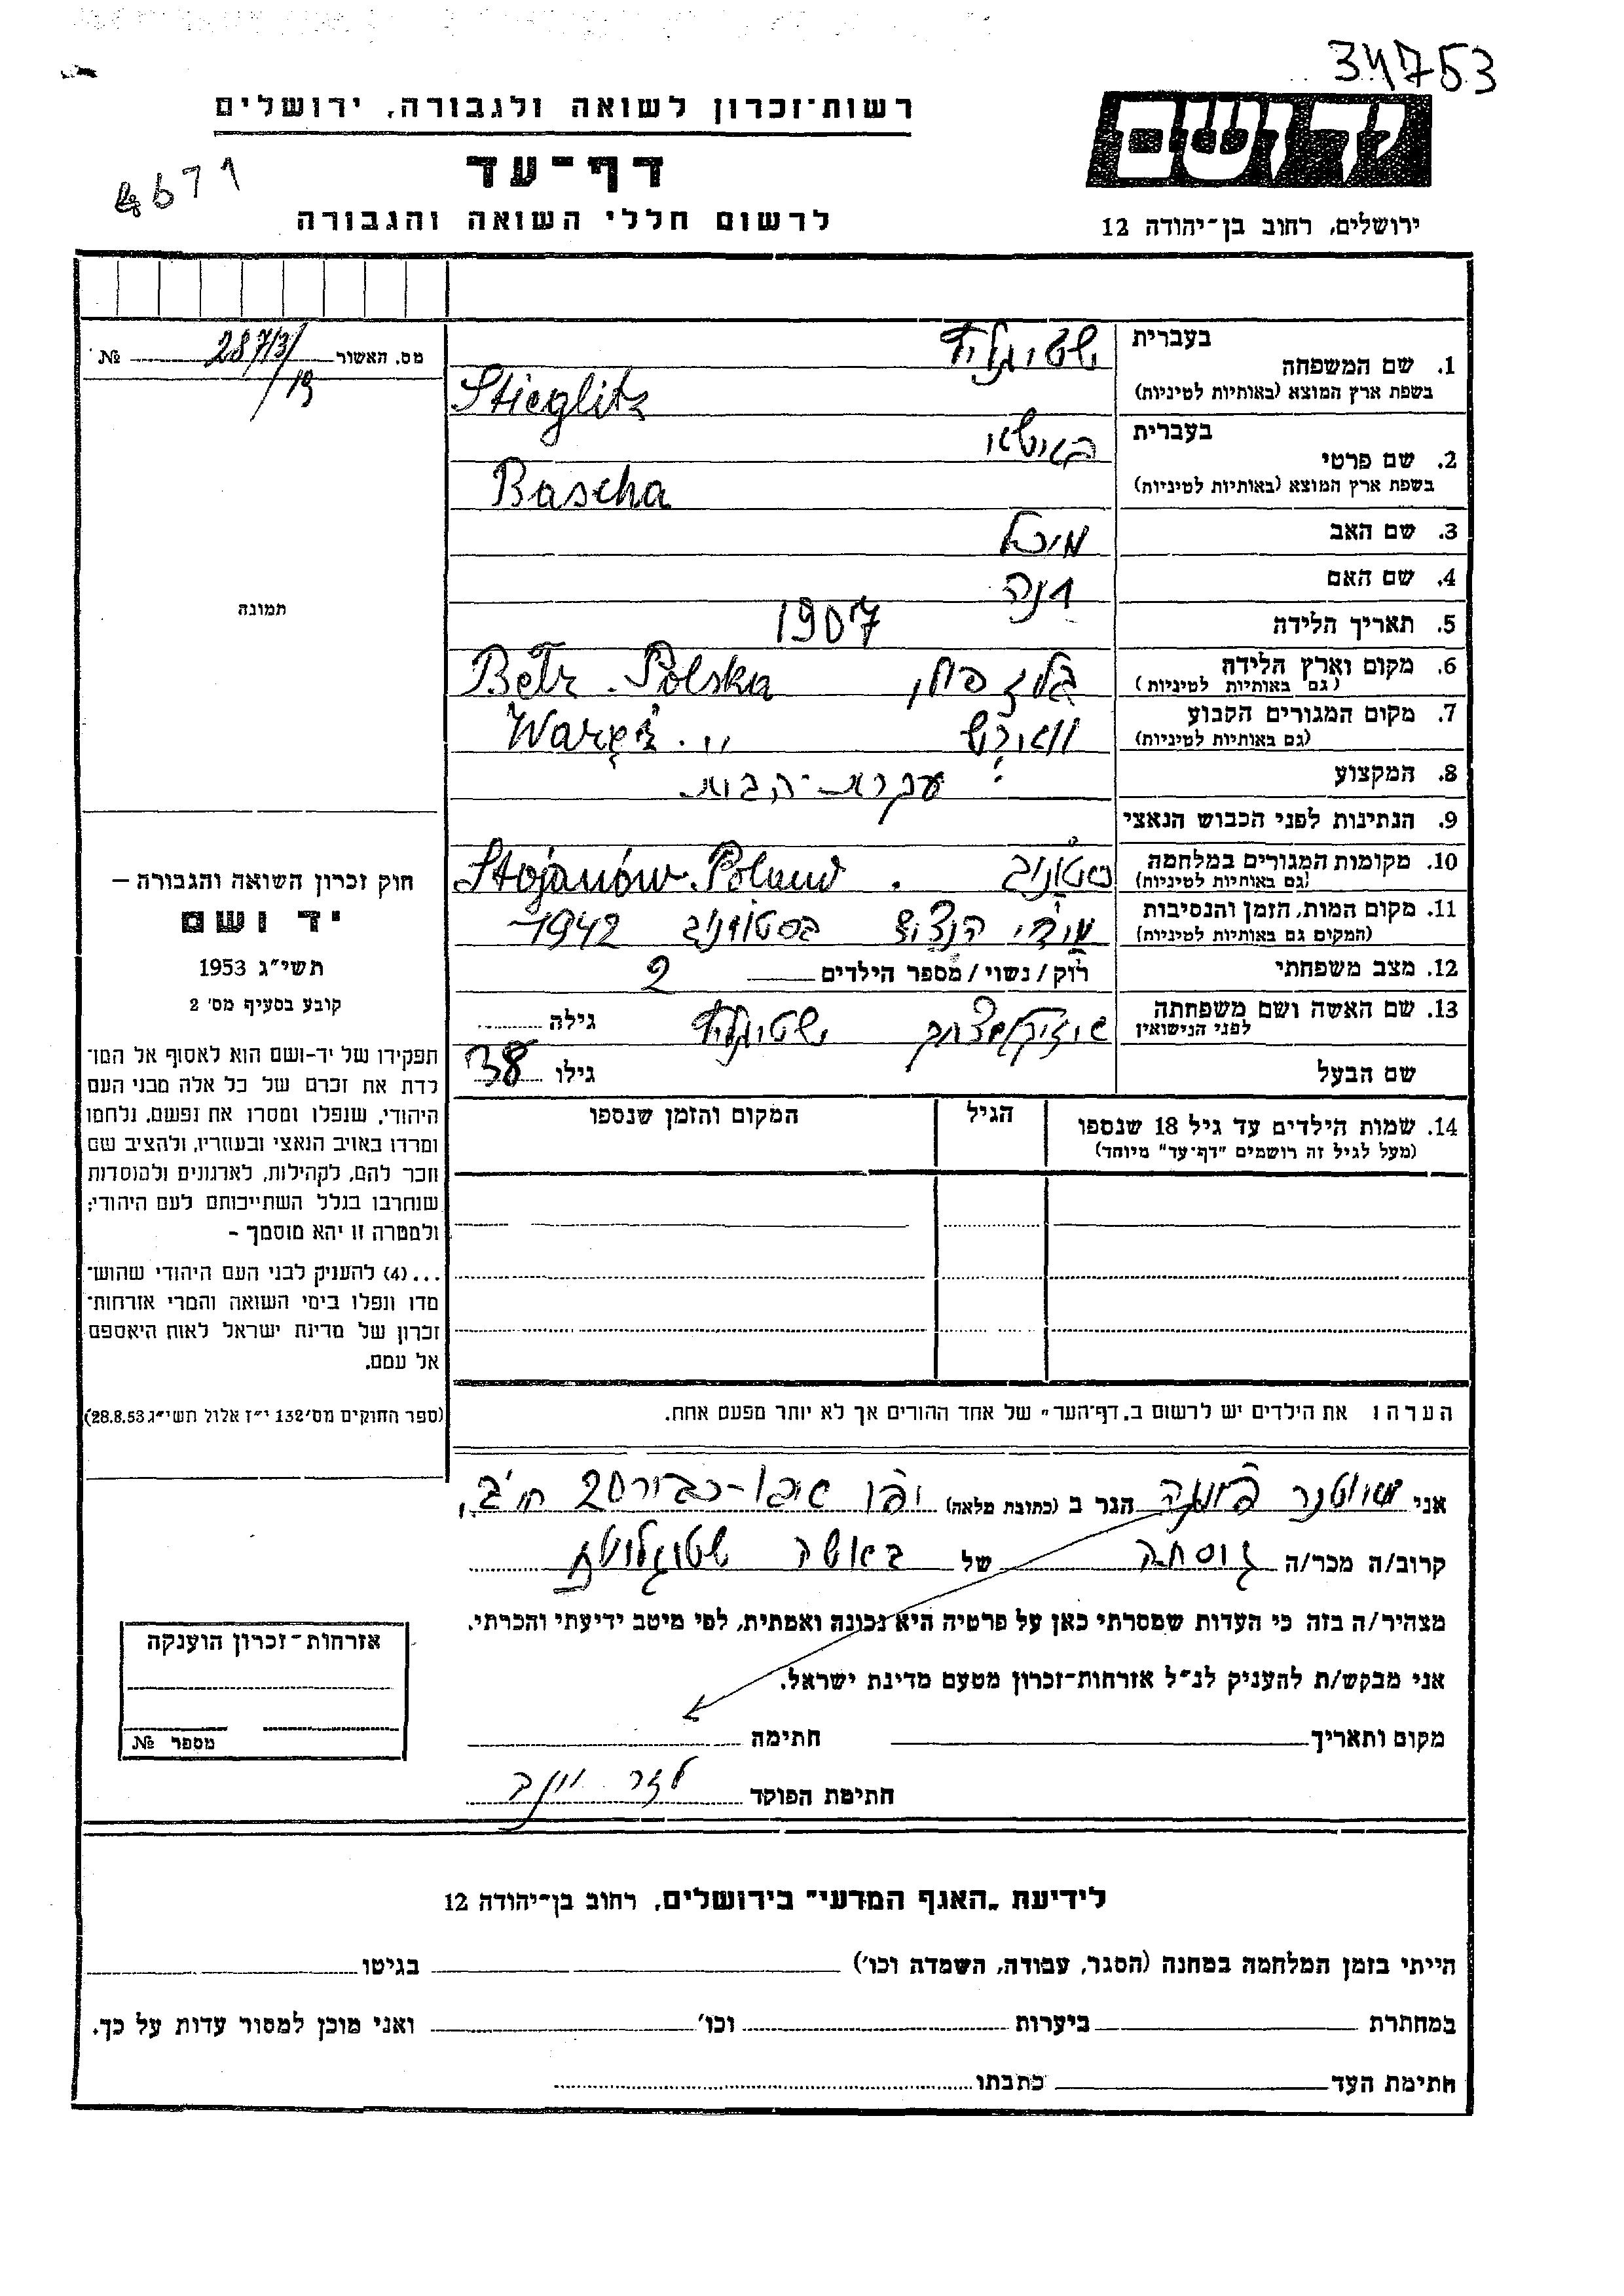 34753
רשות־זכרון לשואה ולגבורה, ירושלים
ידושם
4671
דף־עד
לרשום חללי השואה והגבורה
ירושלים, רחוב בן־יהודה 12
מס. האשור 287/3/19 №
1. שם המשפחה
בעברית
בשפת ארץ המוצא (באותיות לטיניות) Stieglitz
2. שם פרטי
בעברית
בשפת ארץ המוצא (באותיות לטיניות) Bascha
3. שם האב מיכאל
4. שם האם חנה
תמונה
5. תאריך הלידה 1907
6. מקום וארץ הלידה
(גם באותיות לטיניות) בלז פולין Bełz. Polska
7. מקום המגורים הקבוע
(גם באותיות לטיניות)
8. המקצוע עקרת־הבית
9. הנתינות לפני הכבוש הנאצי
10. מקומות המגורים במלחמה
(גם באותיות לטיניות) Stojanów. Poland
11. מקום המות, הזמן והנסיבות
(המקום גם באותיות לטיניות) 1942
12. מצב משפחתי רוק/נשוי/מספר הילדים 2
13. שם האשה ושם משפחתה
לפני הנישואין
גילה
שם הבעל
גילו 38
14. שמות הילדים עד גיל 18 שנספו
(מעל לגיל זה רושמים "דף־עד" מיוחד)
הגיל
המקום והזמן שנספו
חוק זכרון השואה והגבורה —
יד ושם
תשי״ג 1953
קובע בסעיף מס' 2
תפקידו של יד-ושם הוא לאסוף אל המו־
לדת את זכרם של כל אלה מבני העם
היהודי, שנפלו ומסרו את נפשם, נלחמו
ומרדו באויב הנאצי ובעוזריו, ולהציב שם
וזכר להם, לקהילות, לארגונים ולמוסדות
שנחרבו בגלל השתייכותם לעם היהודי;
ולמטרה זו יהא מוסמך –
...(4) להעניק לבני העם היהודי שהוש־
מדו ונפלו בימי השואה והמרי אזרחות־
זכרון של מדינת ישראל לאות היאספם
אל עמם.
(ספר החוקים מס׳ 132 י״ז אלול תשי״ג 28.8.53)
הערה: את הילדים יש לרשום ב„דף־העד״ של אחד ההורים אך לא יותר מפעם אחת.
אני הגר ב (כתובת מלאה) יפו
קרוב/ה מכר/ה גיסתה של באשה
מצהיר/ה בזה כי העדות שמסרתי כאן על פרטיה היא נכונה ואמתית, לפי מיטב ידיעתי והכרתי.
אני מבקש/ת להעניק לנ״ל אזרחות־זכרון מטעם מדינת ישראל.
מקום ותאריך חתימה
חתימת הפוקד
אזרחות־זכרון הוענקה
מספר №
לידיעת „האגף המדעי״ בירושלים, רחוב בן־יהודה 12
הייתי בזמן המלחמה במחנה (הסגר, עבודה, השמדה וכו׳) בגיטו
במחתרת ביערות וכו׳ ואני מוכן למסור עדות על כך.
חתימת העד כתבתו